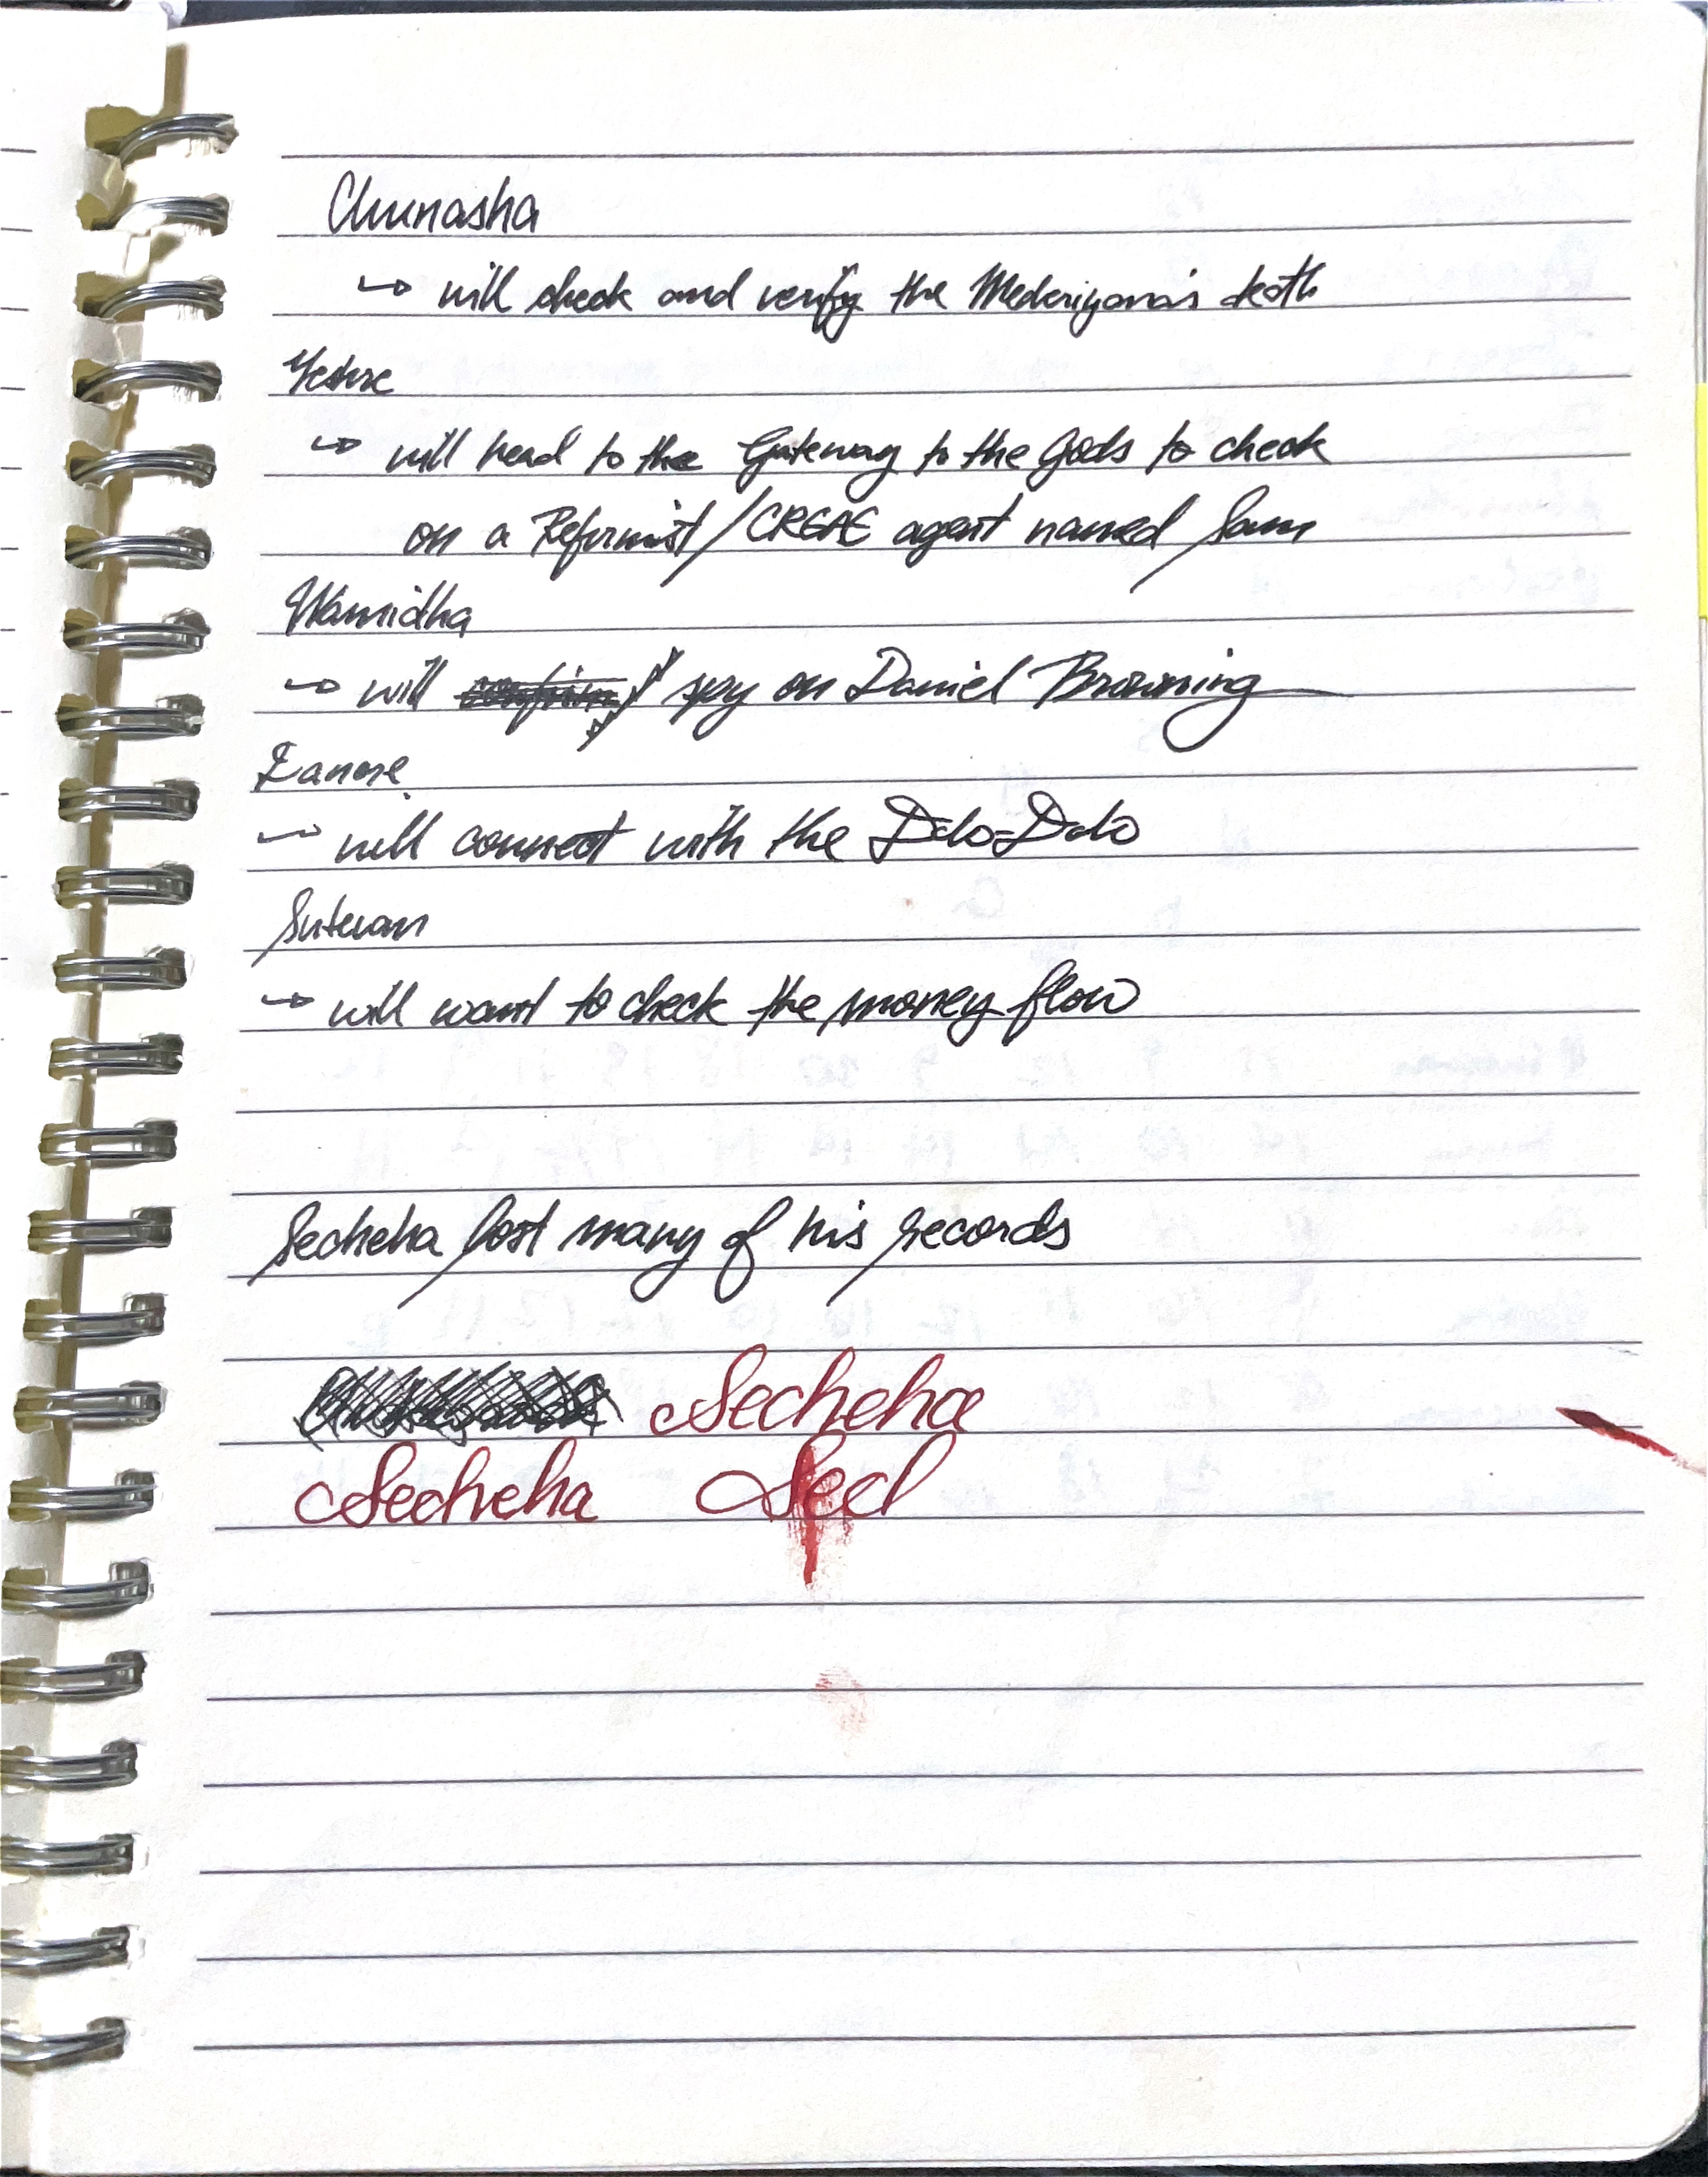 Chunasha
↪ will check and verify the Mederiyana's death
Yeshre
↪ will head to the Gateway to the Gods to check
on a Reformist/CREAE agent named Sam
Wamidha
↪ will spy on Daniel Browning
Eanore
↪ will connect with the DdoDdo
Sutevan
↪ will want to check the money flow
Secheha lost many of his records
Secheha
Secheha Secl